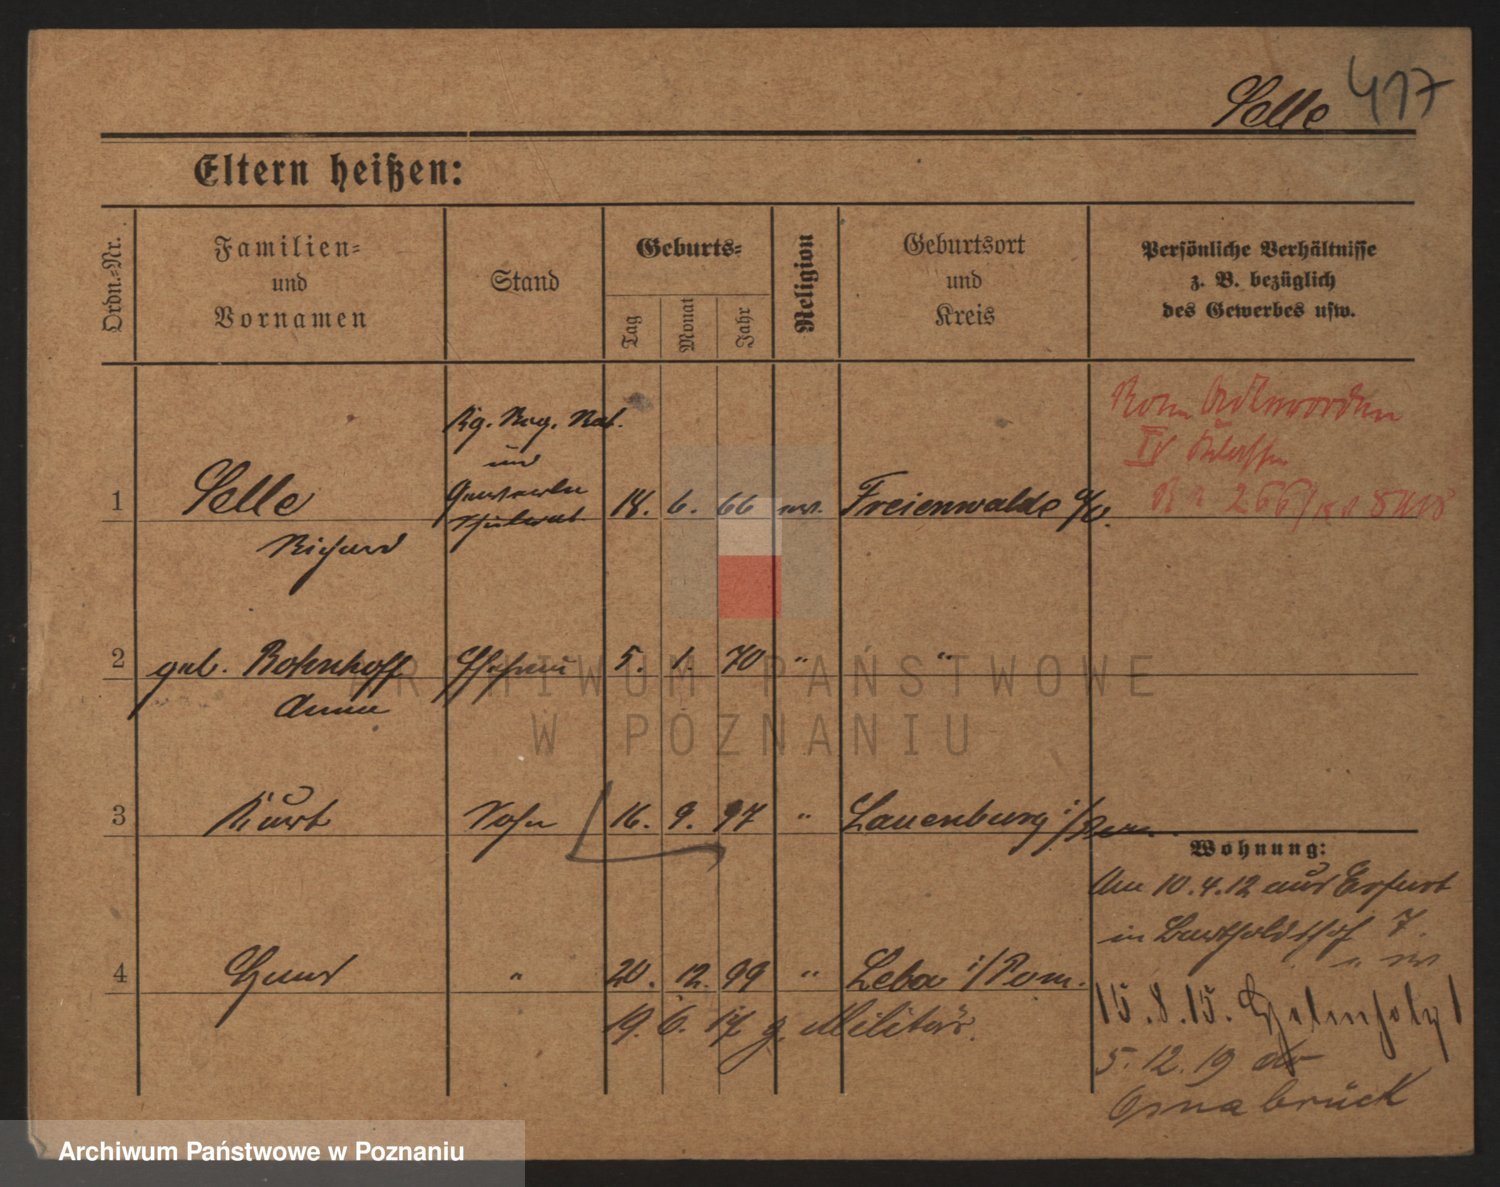 Selle 417
Eltern heißen:
Ordn.-Nr.
Familien- und Vornamen
Stand
Geburts-
Tag
Monat
Jahr
Religion
Geburtsort und Kreis
Persönliche Verhältnisse
z. B. bezüglich
des Gewerbes usw.
Kg. Reg. Rat.
und
Gewerbe
Schulrat
1 Selle 18. 6. 66 ev. Freienwalde a/O.
Richard
Roten Adlerorden
IV Klasse
2 geb. Bohnhoff Ehefrau 5. 1. 70 " "
Anna
3 Kurt Sohn 16. 9. 97 " Lauenburg i/Pom.
Wohnung:
Am 10.4.12 aus Erfurt
in Bertholdshof 7.
4 Hans " 20. 12. 99 " Leba i/Pom.
19. 6. 17 z. Militär.
15.8.15. 1
5.12.19
Osnabrück
ARCHIWUM PAŃSTWOWE
W POZNANIU
Archiwum Państwowe w Poznaniu